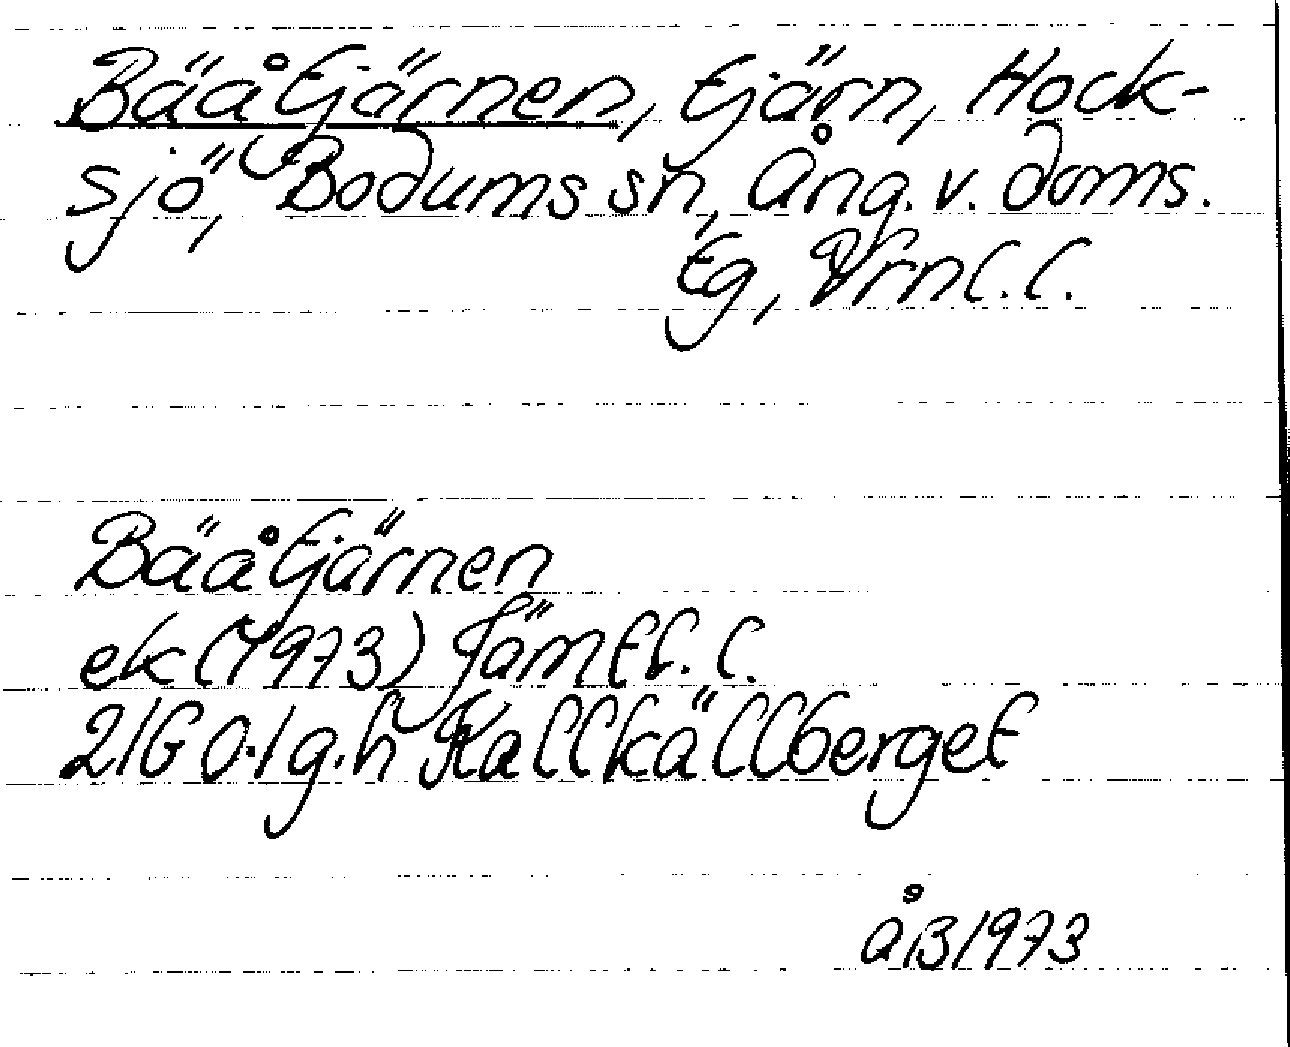 Bäåtjärnen, tjärn, Hock-
sjö, Bodums sn, Ång. v. doms.
tg, Vrnl.l.
Bäåtjärnen
ek (1973) Jämtl. l.
21G 0.1 g.h Kallkällberget
åB 1973